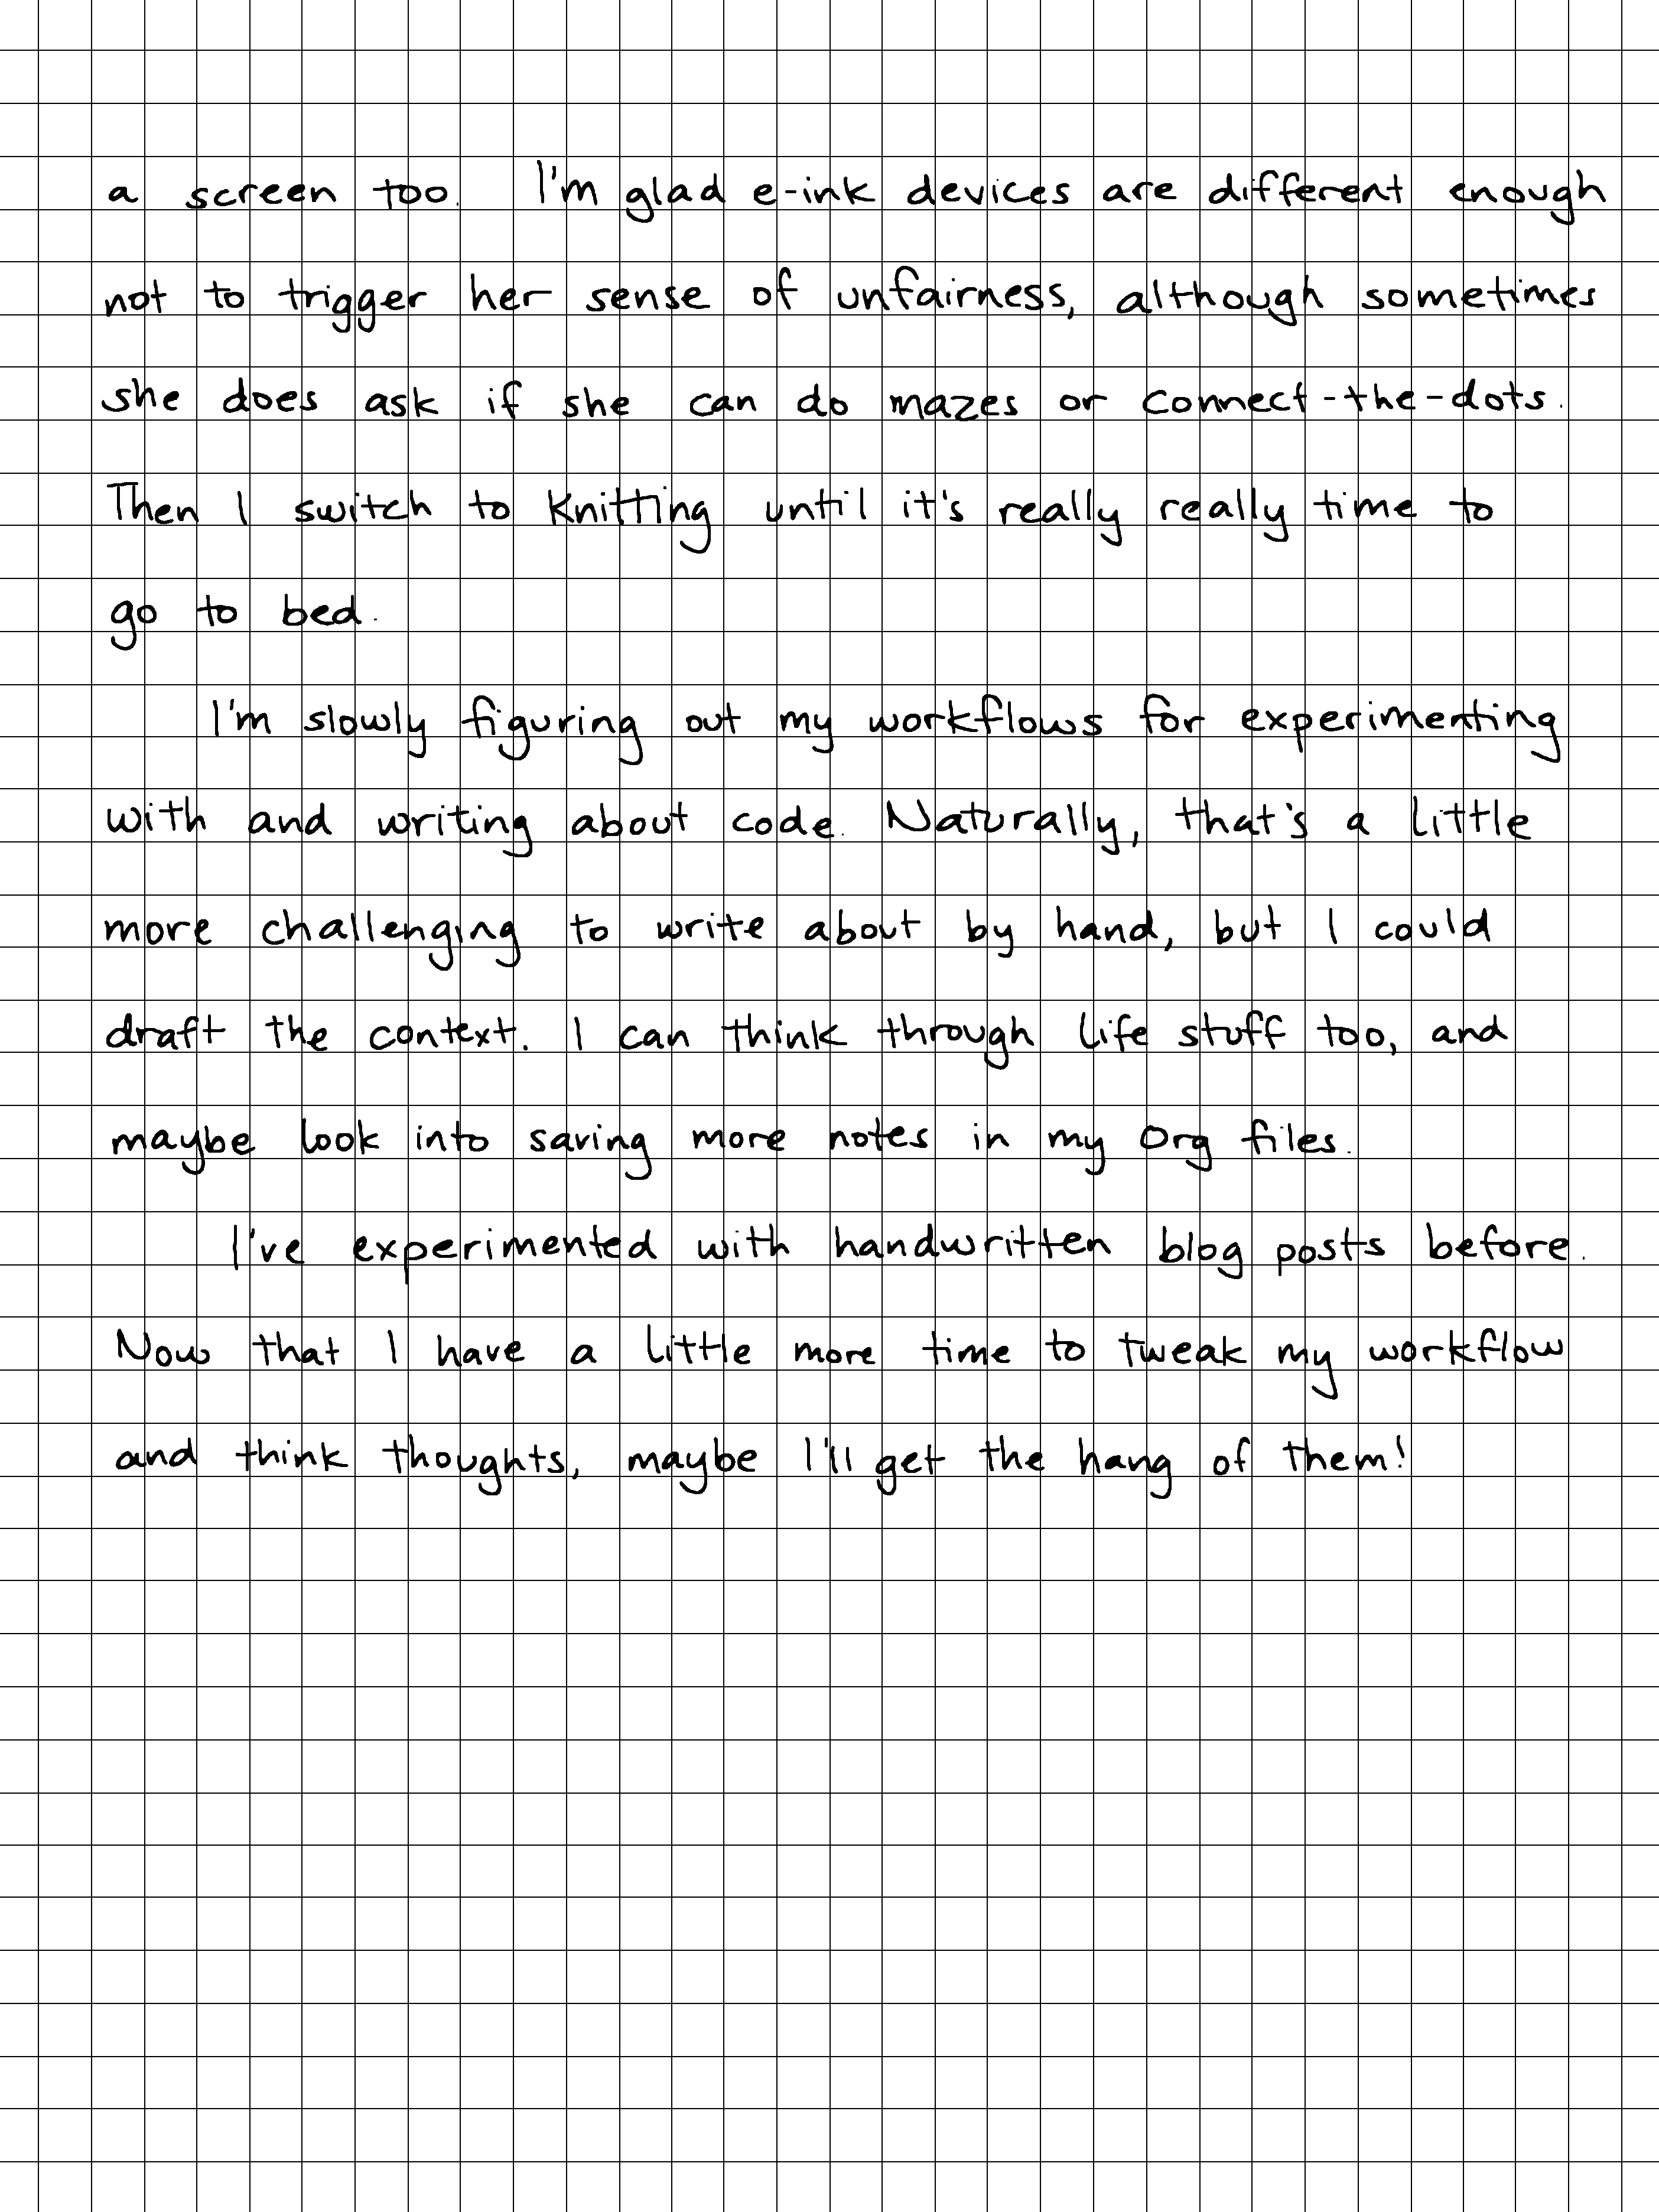 a screen too. I'm glad e-ink devices are different enough
not to trigger her sense of unfairness, although sometimes
she does ask if she can do mazes or connect-the-dots.
Then I switch to knitting until it's really really time to
go to bed.
I'm slowly figuring out my workflows for experimenting
with and writing about code. Naturally, that's a little
more challenging to write about by hand, but I could
draft the context. I can think through life stuff too, and
maybe look into saving more notes in my Org files.
I've experimented with handwritten blog posts before.
Now that I have a little more time to tweak my workflow
and think thoughts, maybe I'll get the hang of them!